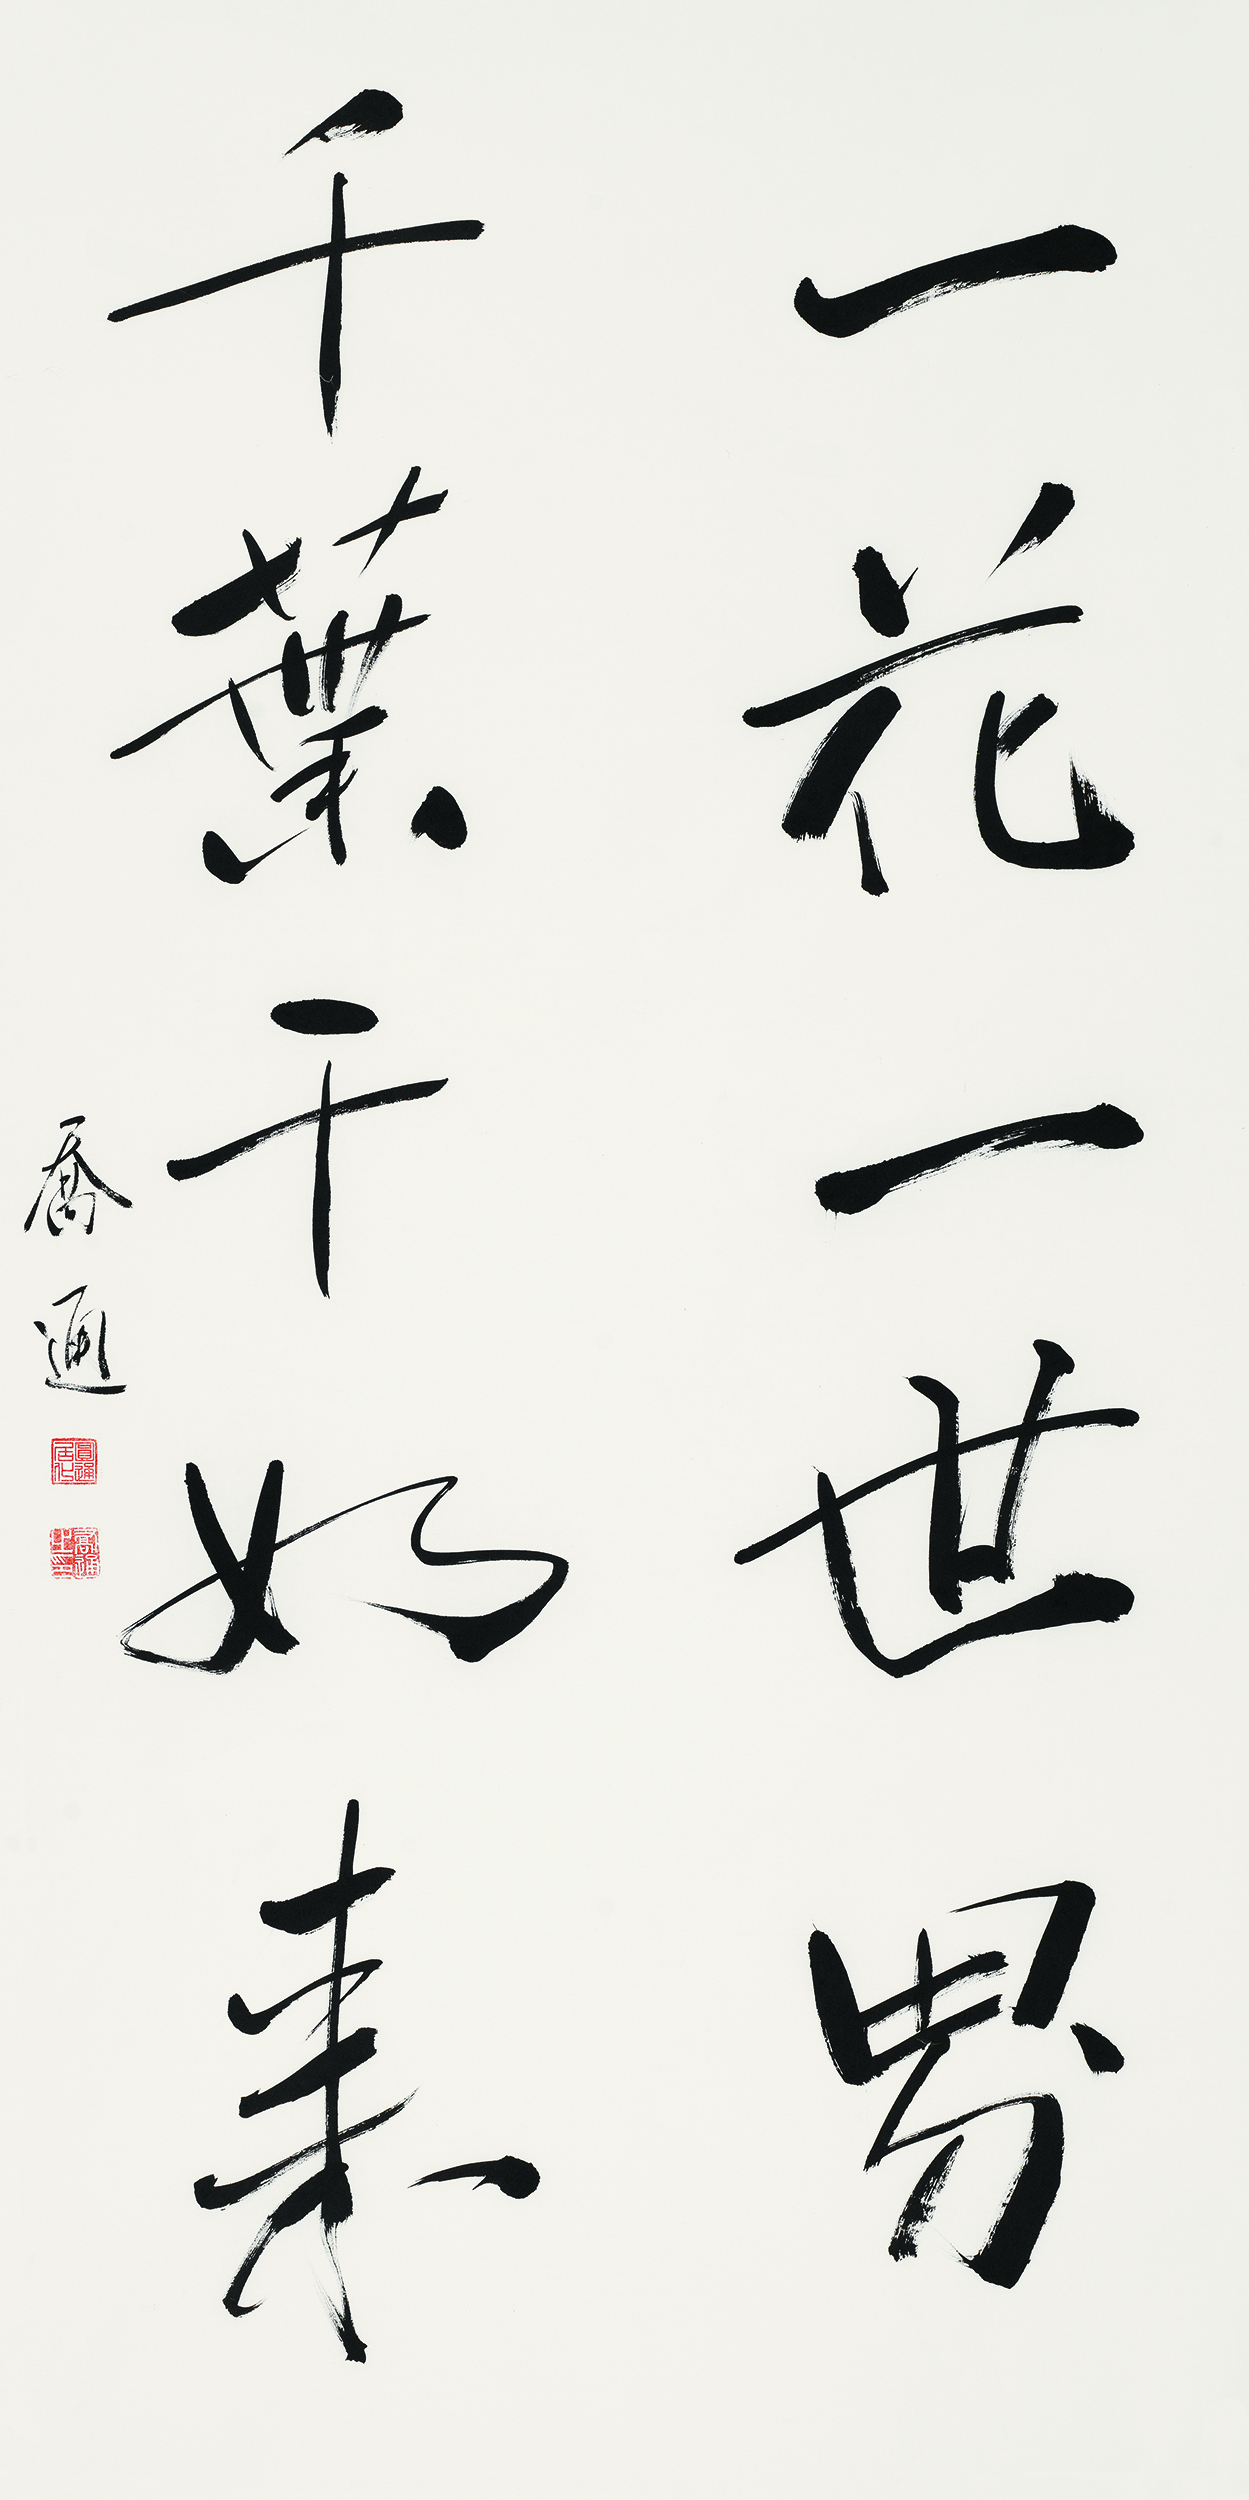 一花一世界
千葉千如來
喬通